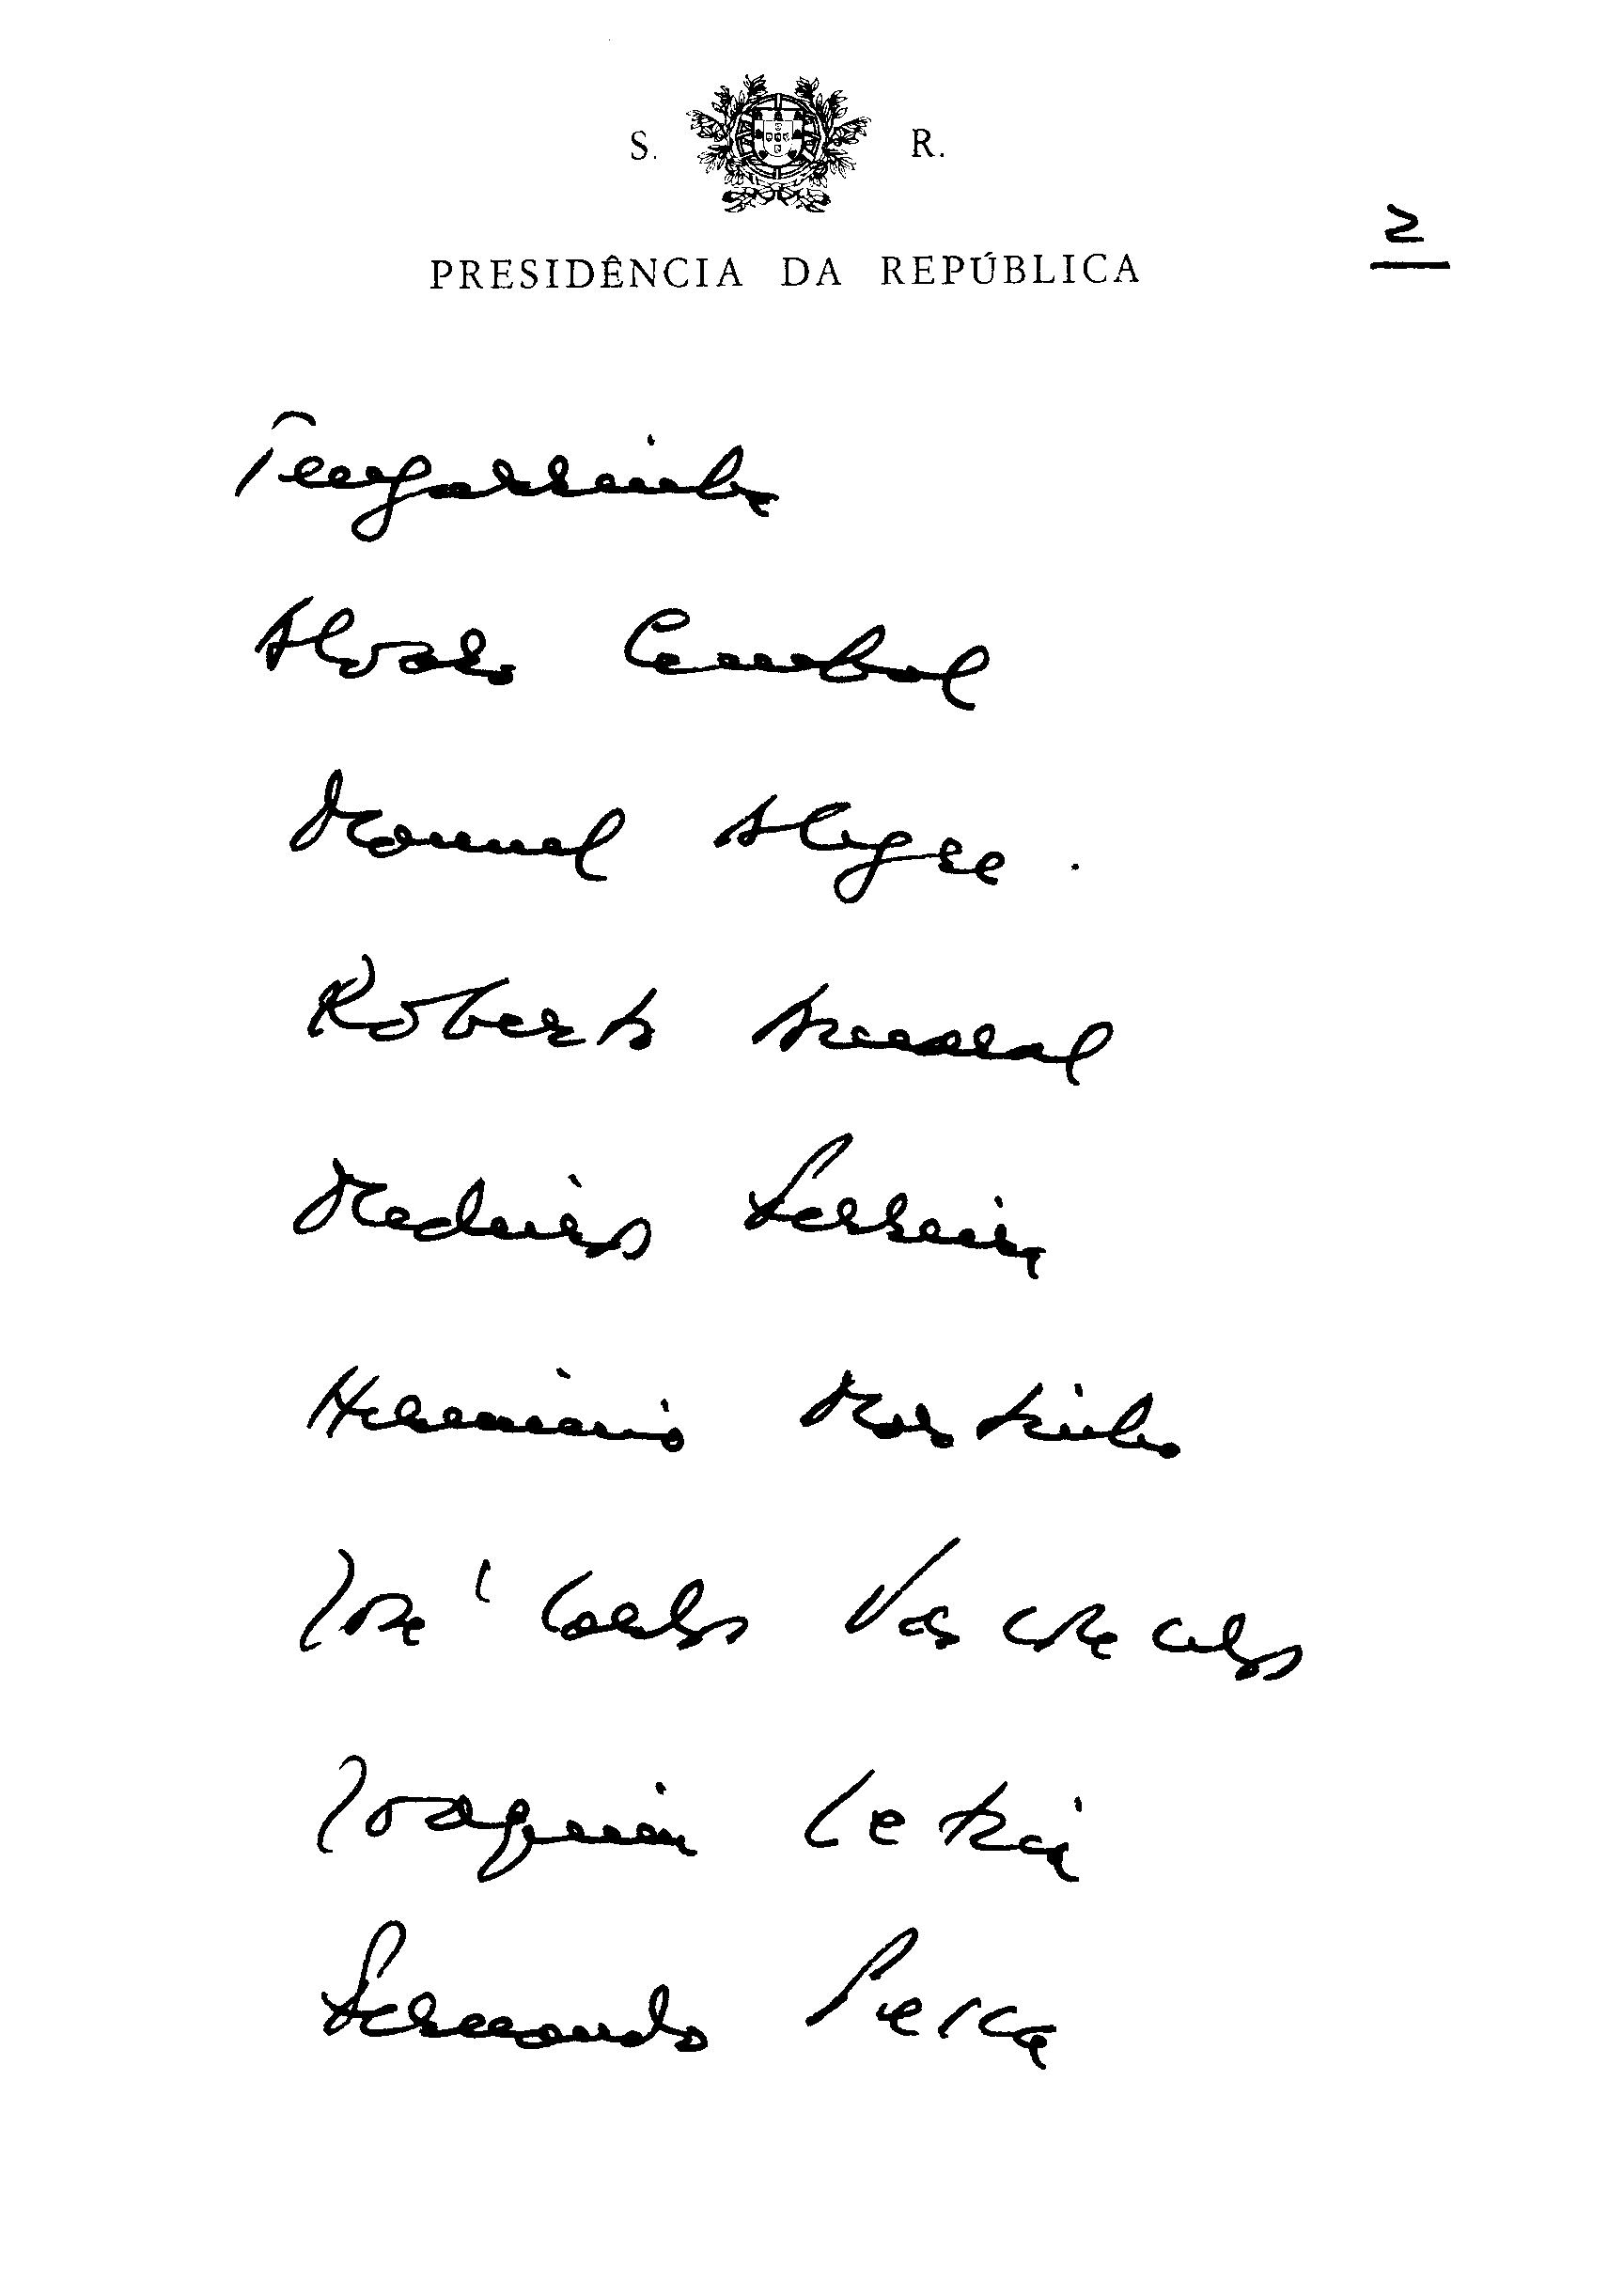 S. R.
PRESIDÊNCIA DA REPÚBLICA
2
Tengarrinha
Alvaro Cunhal
Manuel Alegre
Roberto Amaral
Medeiros Ferreira
Herminio Martinho
José Carlos Vasconcelos
Joaquim Letria
Fernando